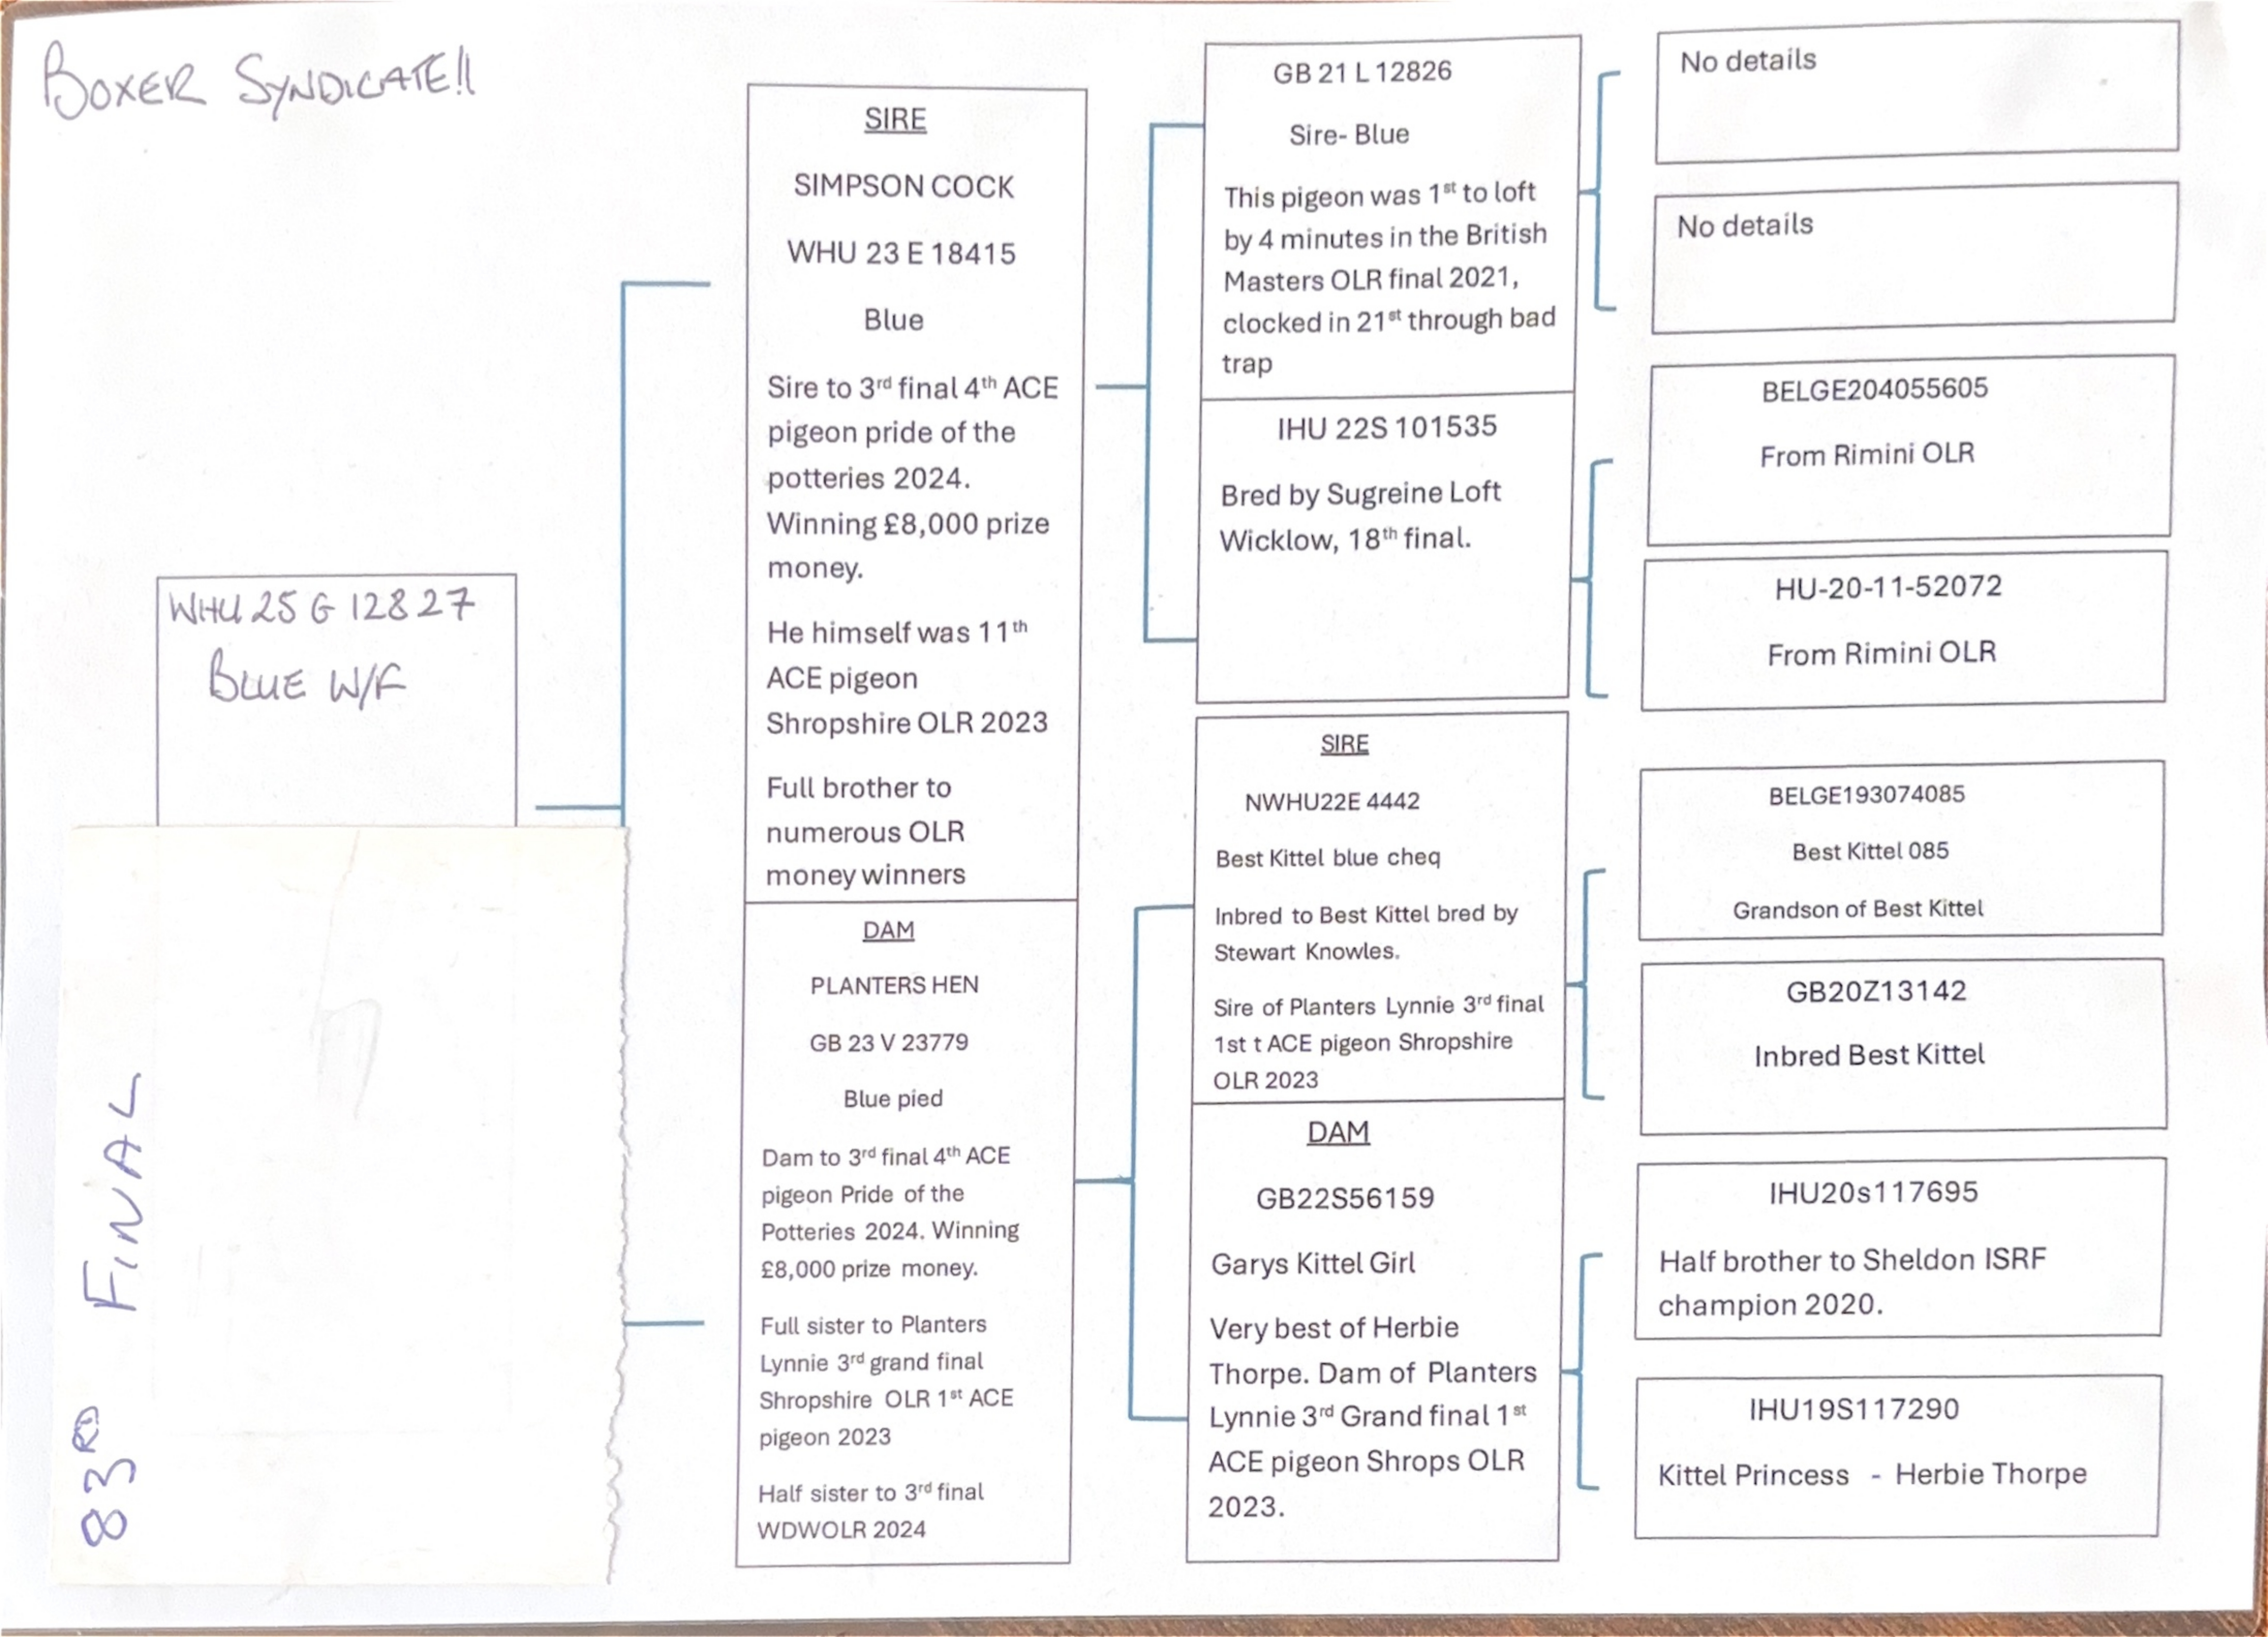 BOXER SYNDICATE!!
WHU 25 G 12827
BLUE W/F
83RD FINAL
SIRE
SIMPSON COCK
WHU 23 E 18415
Blue
Sire to 3rd final 4th ACE
pigeon pride of the
potteries 2024.
Winning £8,000 prize
money.
He himself was 11th
ACE pigeon
Shropshire OLR 2023
Full brother to
numerous OLR
money winners
DAM
PLANTERS HEN
GB 23 V 23779
Blue pied
Dam to 3rd final 4th ACE
pigeon Pride of the
Potteries 2024. Winning
£8,000 prize money.
Full sister to Planters
Lynnie 3rd grand final
Shropshire OLR 1st ACE
pigeon 2023
Half sister to 3rd final
WDWOLR 2024
GB 21 L 12826
Sire- Blue
This pigeon was 1st to loft
by 4 minutes in the British
Masters OLR final 2021,
clocked in 21st through bad
trap
IHU 22S 101535
Bred by Sugreine Loft
Wicklow, 18th final.
SIRE
NWHU22E 4442
Best Kittel blue cheq
Inbred to Best Kittel bred by
Stewart Knowles.
Sire of Planters Lynnie 3rd final
1st t ACE pigeon Shropshire
OLR 2023
DAM
GB22S56159
Garys Kittel Girl
Very best of Herbie
Thorpe. Dam of Planters
Lynnie 3rd Grand final 1st
ACE pigeon Shrops OLR
2023.
No details
No details
BELGE204055605
From Rimini OLR
HU-20-11-52072
From Rimini OLR
BELGE193074085
Best Kittel 085
Grandson of Best Kittel
GB20Z13142
Inbred Best Kittel
IHU20s117695
Half brother to Sheldon ISRF
champion 2020.
IHU19S117290
Kittel Princess - Herbie Thorpe